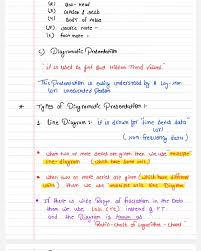 (ii) Box-Head
(iii) Caption & Stub
(iv) Body of table
(v) Source note -
(vi) foot note -
c) Diagramatic Presentation
"it is used to find out Hidden Trend Values"
This Presentation is easily understood by a Lay-man (or) uneducated Person
* Types of Diagramatic Presentation :-
1. Line Diagram :- it is drawn for "time based data"
(or)
(Non-frequency data)
• when two or more series are given then we use "multiple line-diagram" (which have same units)
• when two or more series are given (which have different units) then we use "multiple axis Line Diagram
• If there is wide Range of fluctuation in the Data then we use Log (Yt) instead of YT.
and the Diagram is known as
"Ratio-Chart or Logarithm-Chart"